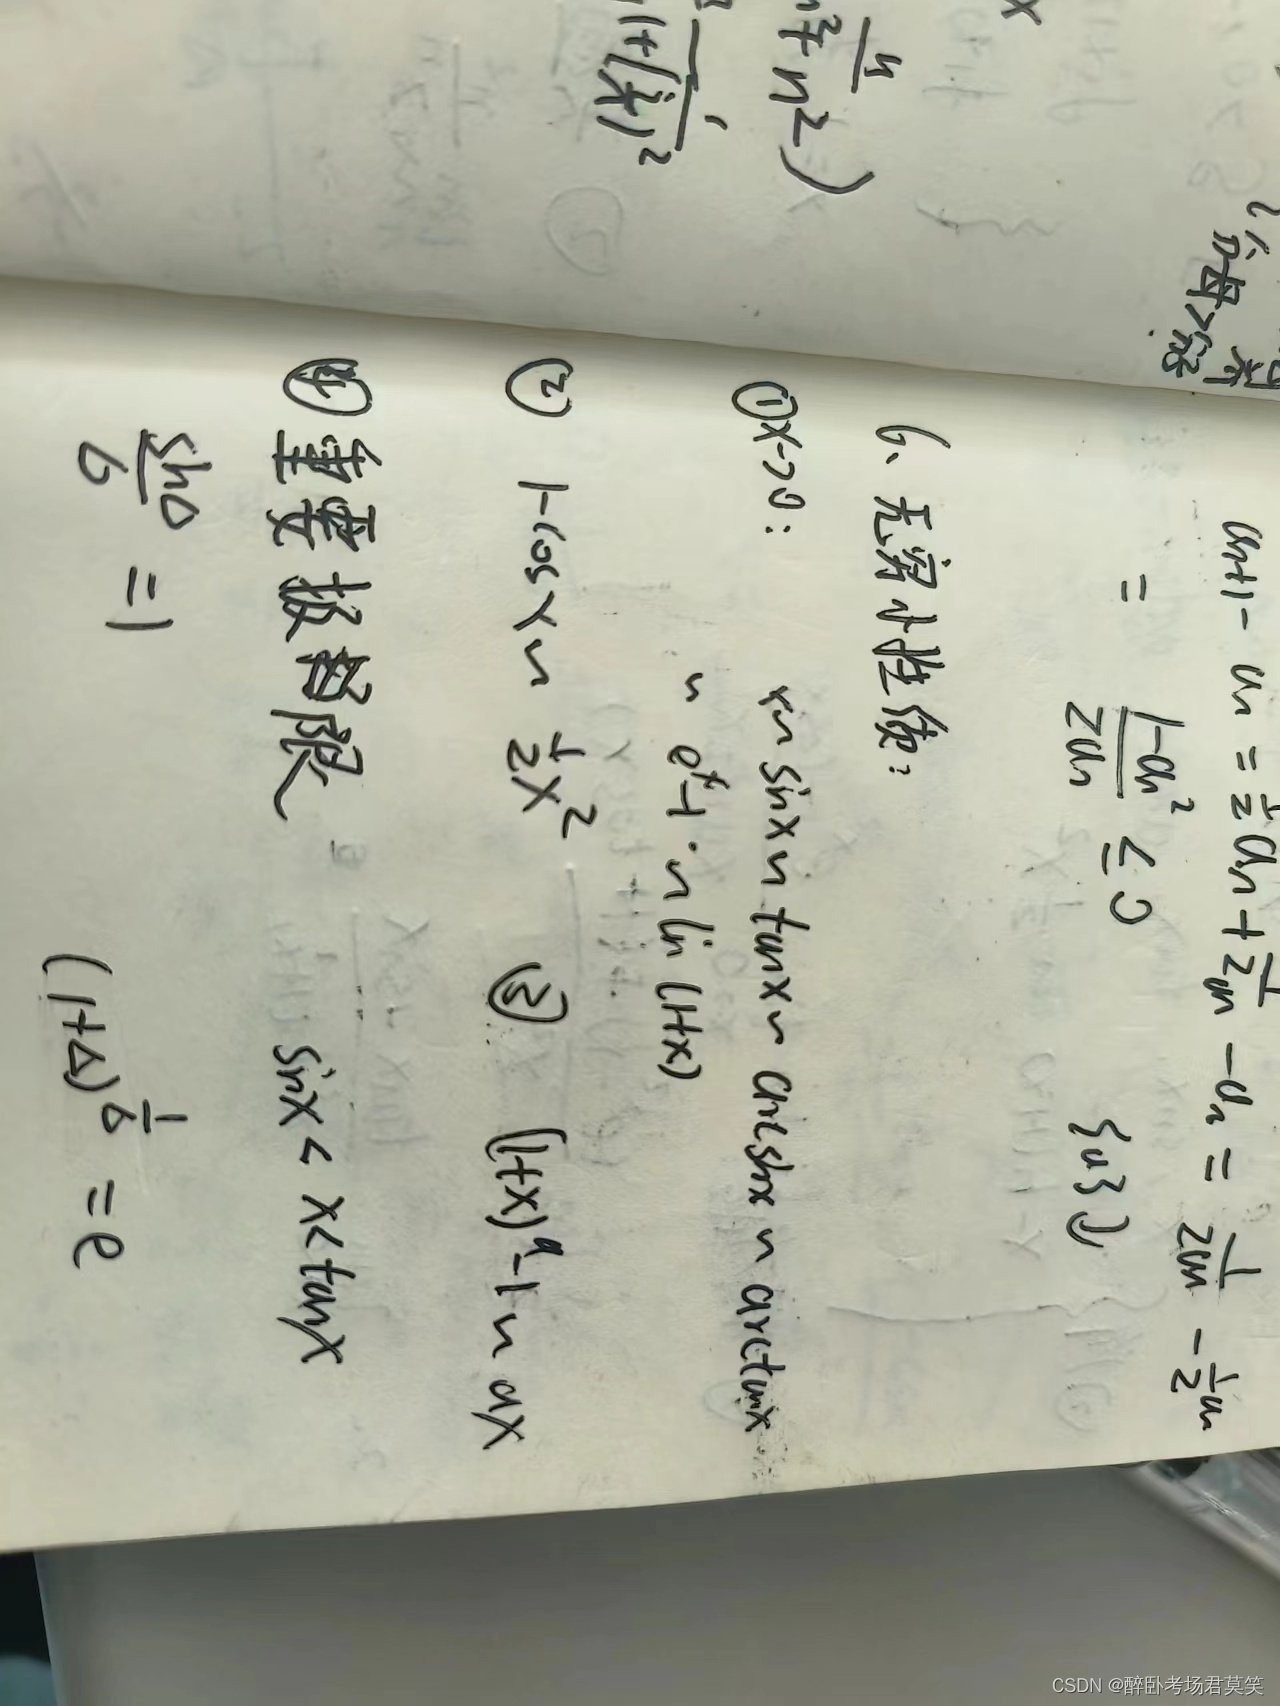 x
n/(n²+n²))
1/(1+(i/n)²
分母>
a_{n+1} - a_n = 1/2 a_n + 1/(2a_n) - a_n = 1/(2a_n) - 1/2 a_n
= (1-a_n²)/(2a_n) ≤ 0 {a}↓
6、无穷小性质:
① x->0: x~sinx~tanx~arcsinx~arctanx
~ e^x-1 ~ ln(1+x)
② 1-cosx ~ 1/2 x² ③ (1+x)^a -1 ~ ax
④ 重要极限 sinx < x < tanx
sinΔ/Δ = 1 (1+Δ)^{1/Δ} = e
CSDN @醉卧考场君莫笑